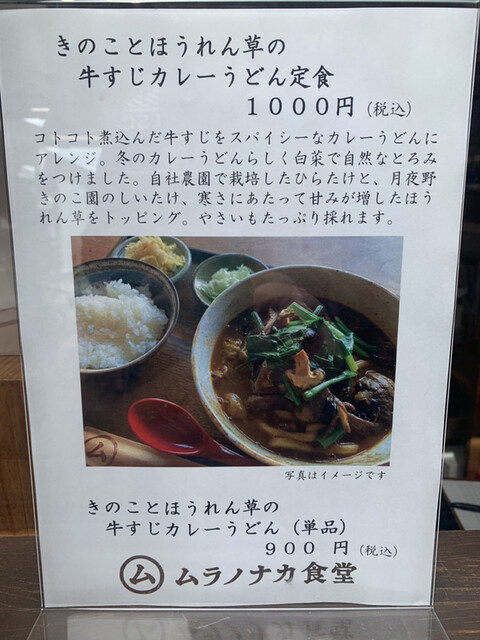 きのことほうれん草の
牛すじカレーうどん定食
1000円(税込)
コトコト煮込んだ牛すじをスパイシーなカレーうどんに
アレンジ。冬のカレーうどんらしく白菜で自然なとろみ
をつけました。自社農園で栽培したひらたけと、月夜野
きのこ園のしいたけ、寒さにあたって甘みが増したほう
れん草をトッピング。やさいもたっぷり採れます。
ム
写真はイメージです
きのことほうれん草の
牛すじカレーうどん(単品)
900 円(税込)
ム ムラノナカ食堂